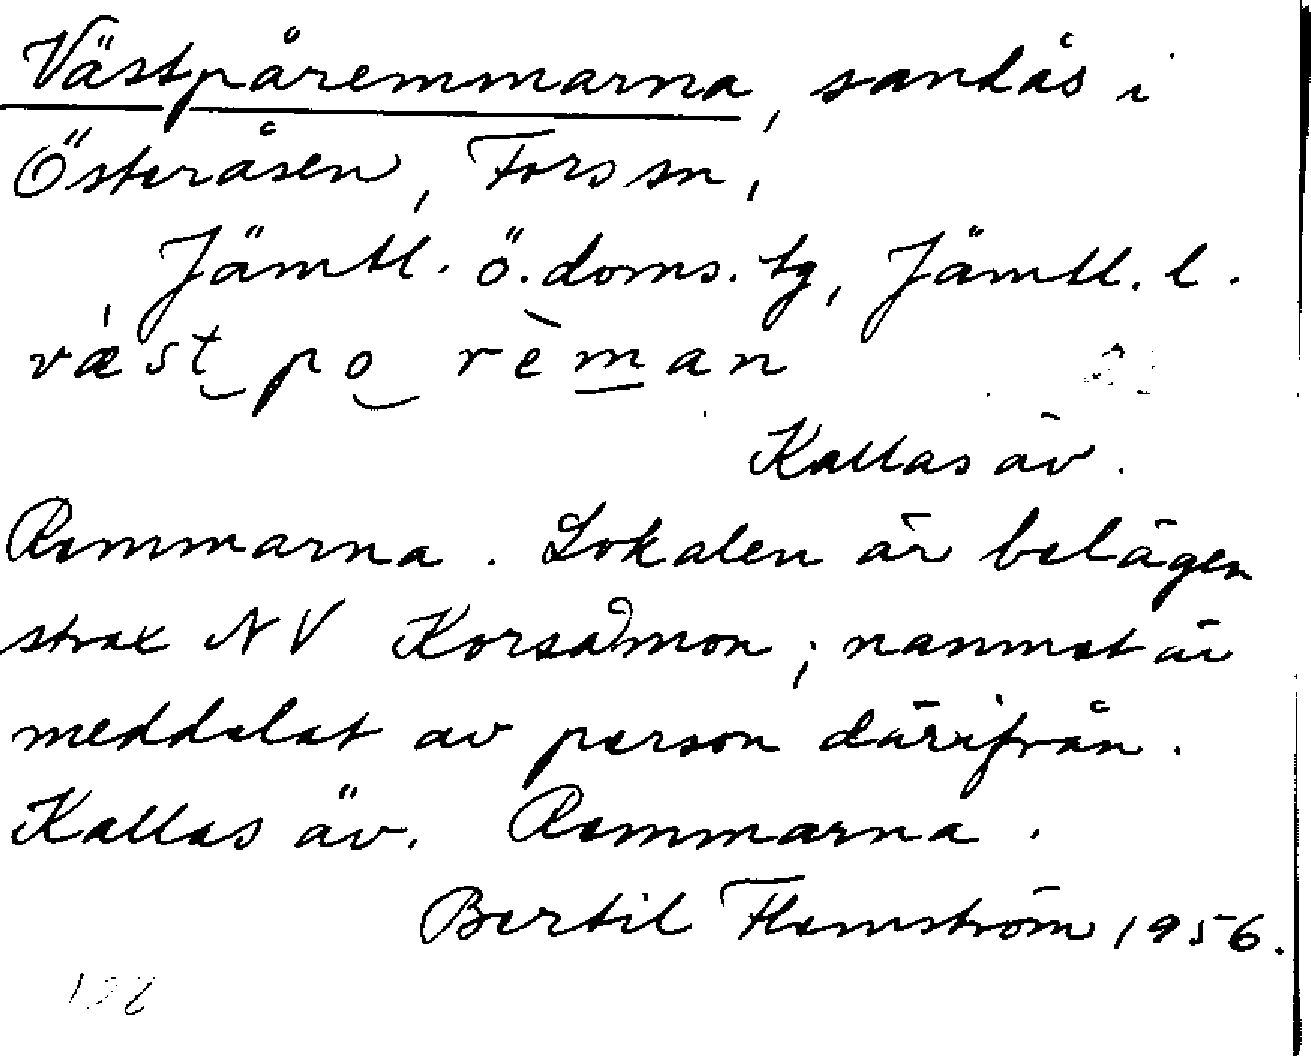 Västpåremmarna, sandås i
Österåsen, Fors sn,
Jämtl. ö. doms. tg, Jämtl. l.
væ̀st po rèman
Kallas äv.
Remmarna. Lokalen är belägen
strax NV Korsåmon; namnet är
meddelat av person därifrån.
Kallas äv. Remmarna.
Bertil Flemström 1956.